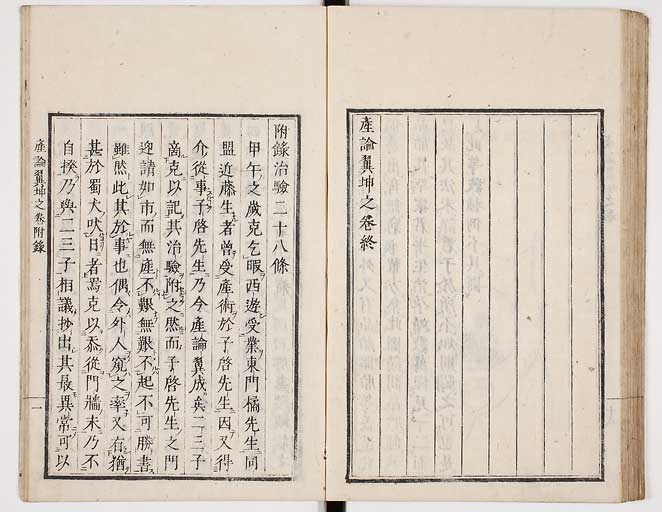 產論翼坤之卷終
附錄治驗二十八條
甲午之歲克乞暇西遊受業東門橘先生同
盟近藤生者曾受產術於子啓先生因又得
介從事子啓先生乃今產論翼成矣二三子
商克以記其治驗附之然而子啓先生之門
迎請如市而無產不艱無艱不起不可勝書
雖然此其於事也偶令外人窺之率又有猶
甚於蜀犬吠日者焉克以忝從門牆未乃不
自揆乃與二三子相議抄出其最異常可以
產論翼坤之卷附錄
一